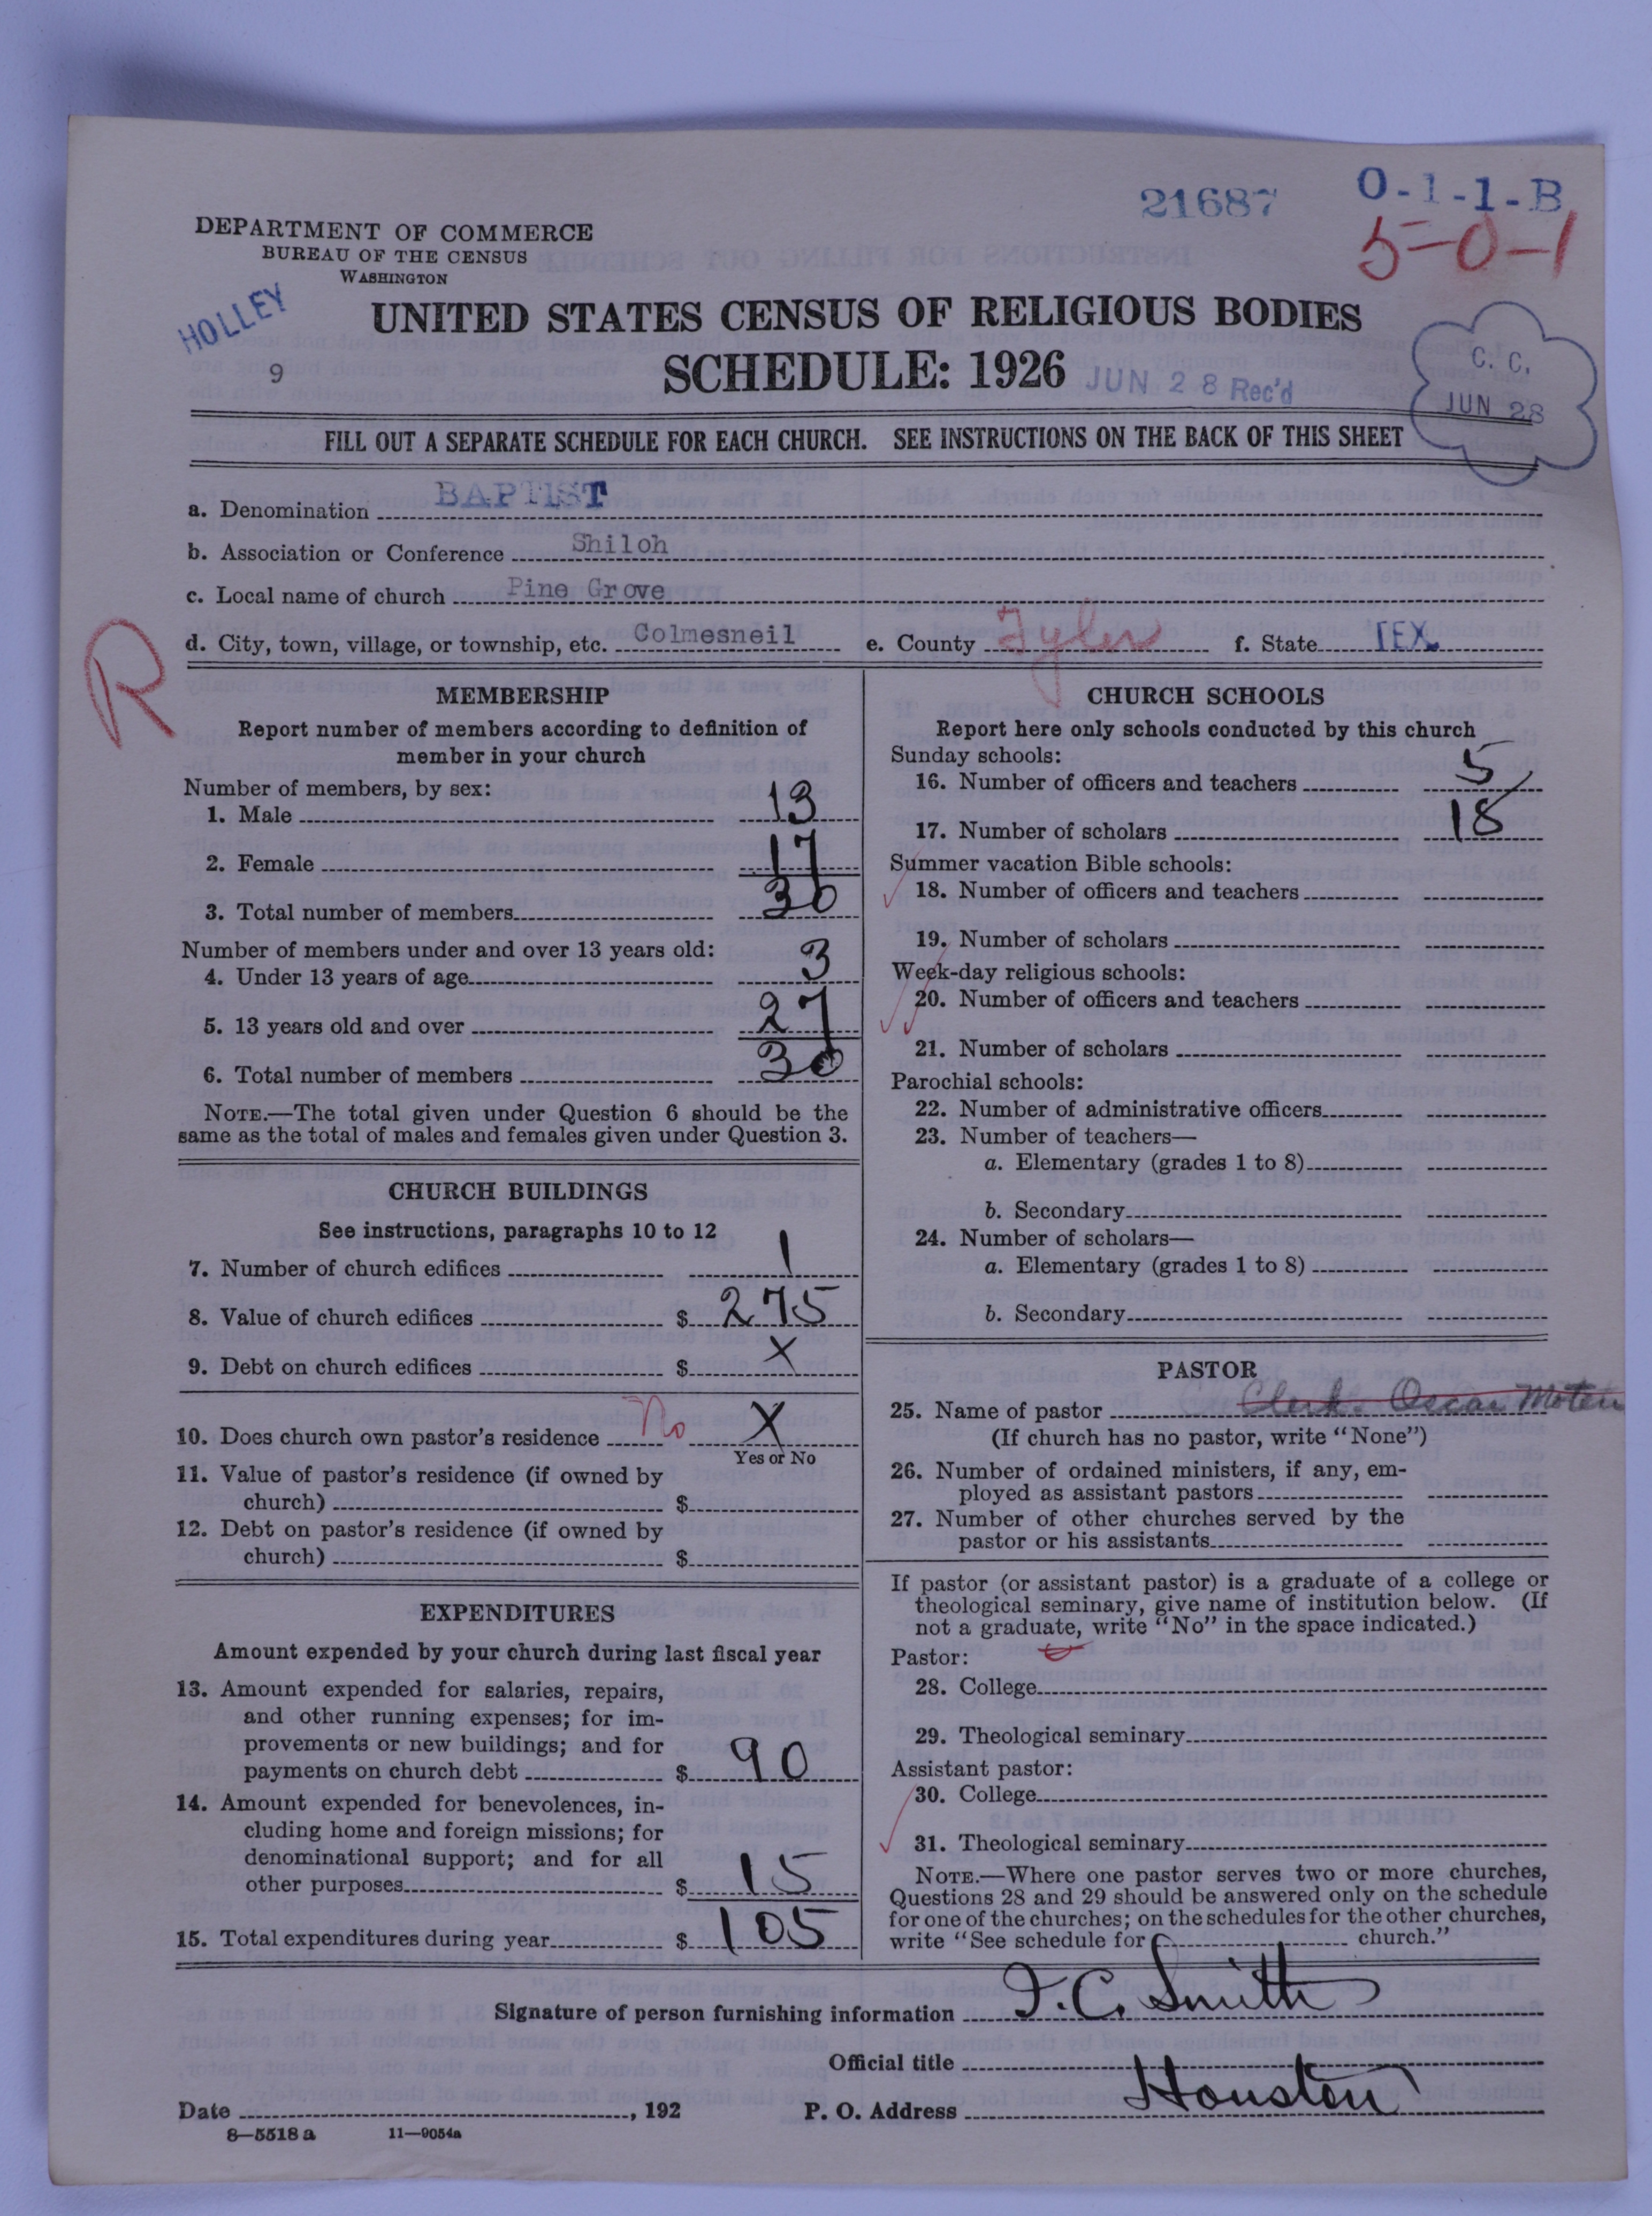 21687
O-1-1-B
5-0-1
DEPARTMENT OF COMMERCE
BUREAU OF THE CENSUS
WASHINGTON
HOLLEY
9
UNITED STATES CENSUS OF RELIGIOUS BODIES
SCHEDULE: 1926 JUN 28 Rec'd
C. C.
JUN 28
FILL OUT A SEPARATE SCHEDULE FOR EACH CHURCH. SEE INSTRUCTIONS ON THE BACK OF THIS SHEET
a. Denomination BAPTIST
b. Association or Conference Shiloh
c. Local name of church Pine Grove
d. City, town, village, or township, etc. Colmesneil e. County Tyler f. State TEX.
R
MEMBERSHIP
Report number of members according to definition of
member in your church
Number of members, by sex:
1. Male 13
2. Female 17
3. Total number of members 30
Number of members under and over 13 years old:
4. Under 13 years of age 3
5. 13 years old and over 27
6. Total number of members 30
NOTE.—The total given under Question 6 should be the
same as the total of males and females given under Question 3.
CHURCH BUILDINGS
See instructions, paragraphs 10 to 12
7. Number of church edifices 1
8. Value of church edifices $ 275
9. Debt on church edifices $ X
10. Does church own pastor's residence No X
Yes or No
11. Value of pastor's residence (if owned by
church) $
12. Debt on pastor's residence (if owned by
church) $
EXPENDITURES
Amount expended by your church during last fiscal year
13. Amount expended for salaries, repairs,
and other running expenses; for im-
provements or new buildings; and for
payments on church debt $ 90
14. Amount expended for benevolences, in-
cluding home and foreign missions; for
denominational support; and for all
other purposes $ 15
15. Total expenditures during year $ 105
CHURCH SCHOOLS
Report here only schools conducted by this church
Sunday schools:
16. Number of officers and teachers 5
17. Number of scholars 18
Summer vacation Bible schools:
18. Number of officers and teachers
19. Number of scholars
Week-day religious schools:
20. Number of officers and teachers
21. Number of scholars
Parochial schools:
22. Number of administrative officers
23. Number of teachers—
a. Elementary (grades 1 to 8)
b. Secondary
24. Number of scholars—
a. Elementary (grades 1 to 8)
b. Secondary
PASTOR
25. Name of pastor Clerk. Oscar Moten
(If church has no pastor, write "None")
26. Number of ordained ministers, if any, em-
ployed as assistant pastors
27. Number of other churches served by the
pastor or his assistants
If pastor (or assistant pastor) is a graduate of a college or
theological seminary, give name of institution below. (If
not a graduate, write "No" in the space indicated.)
Pastor:
28. College
29. Theological seminary
Assistant pastor:
30. College
31. Theological seminary
NOTE.—Where one pastor serves two or more churches,
Questions 28 and 29 should be answered only on the schedule
for one of the churches; on the schedules for the other churches,
write "See schedule for church."
Signature of person furnishing information J. C. Smith
Official title
Date , 192 P. O. Address Houston
8—5518 a 11—9054a